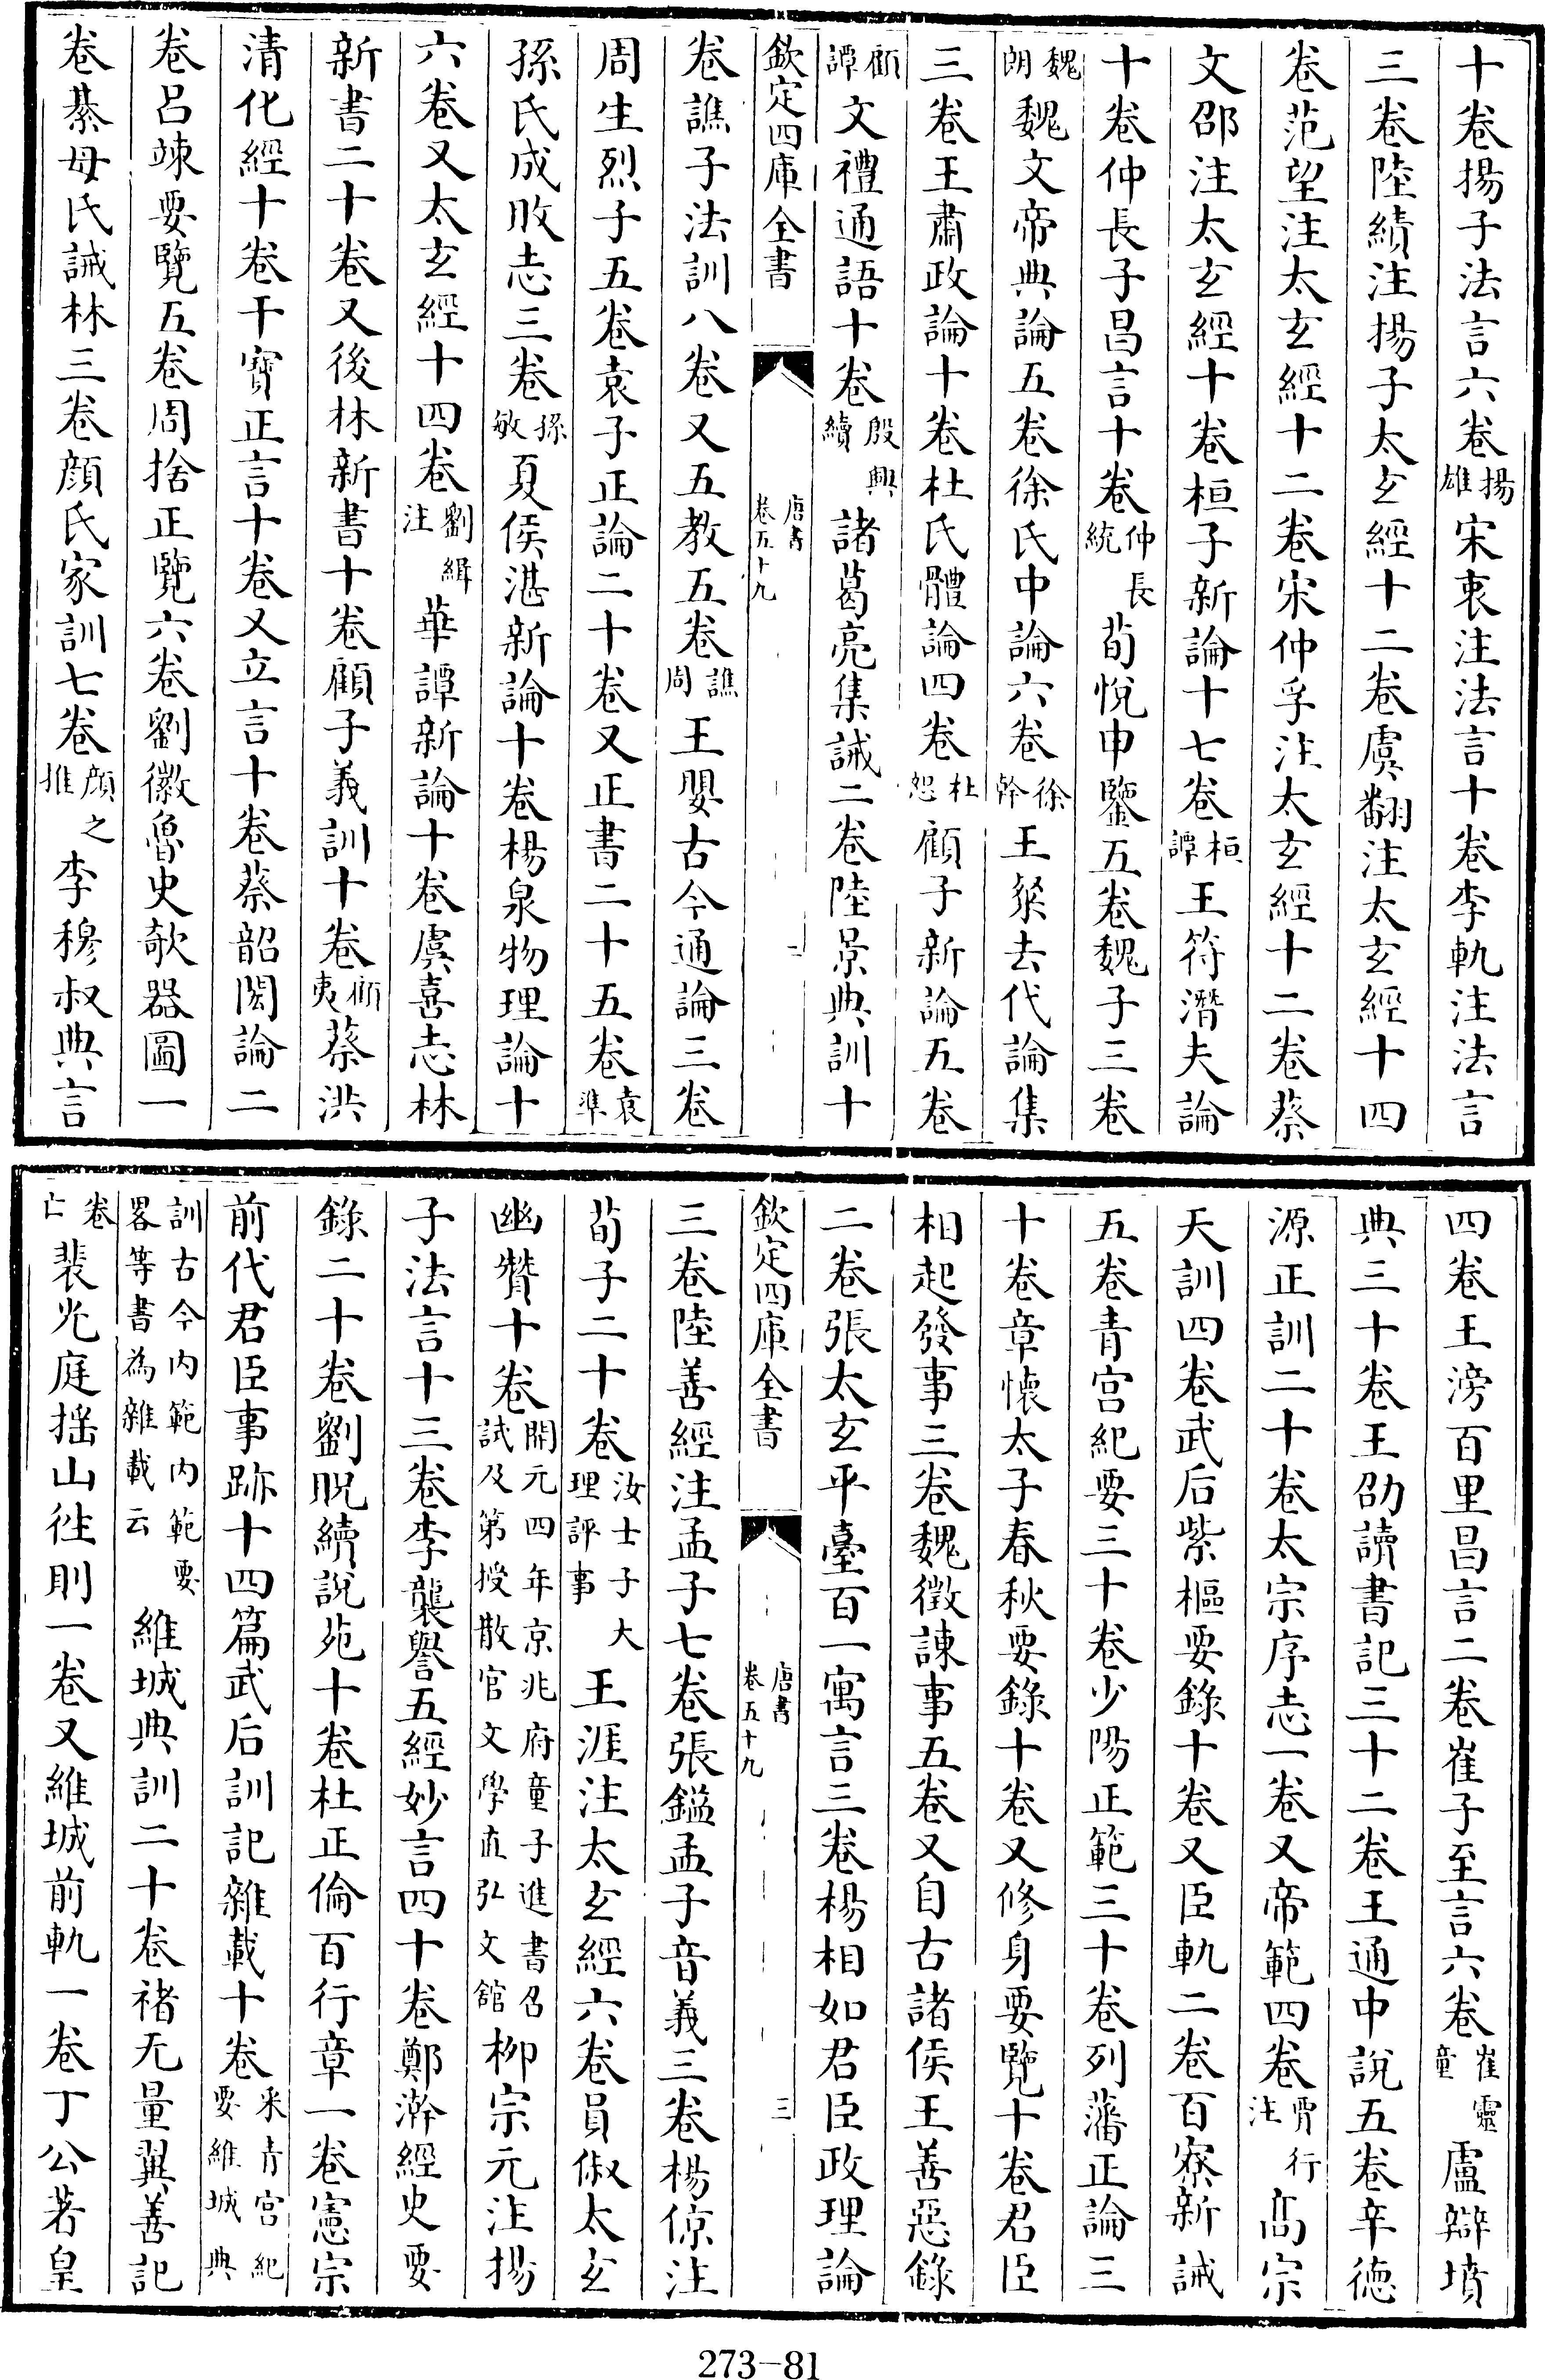 十卷揚子法言六卷揚雄宋衷注法言十卷李軌注法言
三卷陸績注揚子太玄經十二卷虞翻注太玄經十四
卷范望注太玄經十二卷宋仲孚注太玄經十二卷蔡
文邵注太玄經十卷桓子新論十七卷桓譚王符潛夫論
十卷仲長子昌言十卷仲長統荀悅申鑒五卷魏子三卷
魏朗魏文帝典論五卷徐氏中論六卷徐幹王粲去代論集
三卷王肅政論十卷杜氏體論四卷杜恕顧子新論五卷
顧譚文禮通語十卷殷興續諸葛亮集誡二卷陸景典訓十
欽定四庫全書 唐書卷五十九 二
卷譙子法訓八卷又五教五卷譙周王嬰古今通論三卷
周生烈子五卷袁子正論二十卷又正書二十五卷袁準
孫氏成敗志三卷孫敏夏侯湛新論十卷楊泉物理論十
六卷又太玄經十四卷劉緝注華譚新論十卷虞喜志林
新書二十卷又後林新書十卷顧子義訓十卷顧夷蔡洪
清化經十卷干寶正言十卷又立言十卷蔡韶閎論二
卷呂竦要覽五卷周捨正覽六卷劉徽魯史欹器圖一
卷綦母氏誡林三卷顏氏家訓七卷顏之推李穆叔典言
四卷王滂百里昌言二卷崔子至言六卷崔靈童盧辯墳
典三十卷王劭讀書記三十二卷王通中說五卷辛德
源正訓二十卷太宗序志一卷又帝範四卷賈行注高宗
天訓四卷武后紫樞要錄十卷又臣軌二卷百寮新誡
五卷青宮紀要三十卷少陽正範三十卷列藩正論三
十卷章懷太子春秋要錄十卷又修身要覽十卷君臣
相起發事三卷魏徵諫事五卷又自古諸侯王善惡錄
二卷張太玄平臺百一寓言三卷楊相如君臣政理論
欽定四庫全書 唐書卷五十九 三
三卷陸善經注孟子七卷張鎰孟子音義三卷楊倞注
荀子二十卷汝士子大理評事王涯注太玄經六卷員俶太玄
幽贊十卷開元四年京兆府童子進書召試及第授散官文學直弘文館柳宗元注揚
子法言十三卷李襲譽五經妙言四十卷鄭澣經史要
錄二十卷劉貺續說苑十卷杜正倫百行章一卷憲宗
前代君臣事跡十四篇武后訓記雜載十卷采青宮紀要維城典
訓古今內範內範要畧等書為雜載云維城典訓二十卷褚无量翼善記
卷亡裴光庭揺山往則一卷又維城前軌一卷丁公著皇
273-81